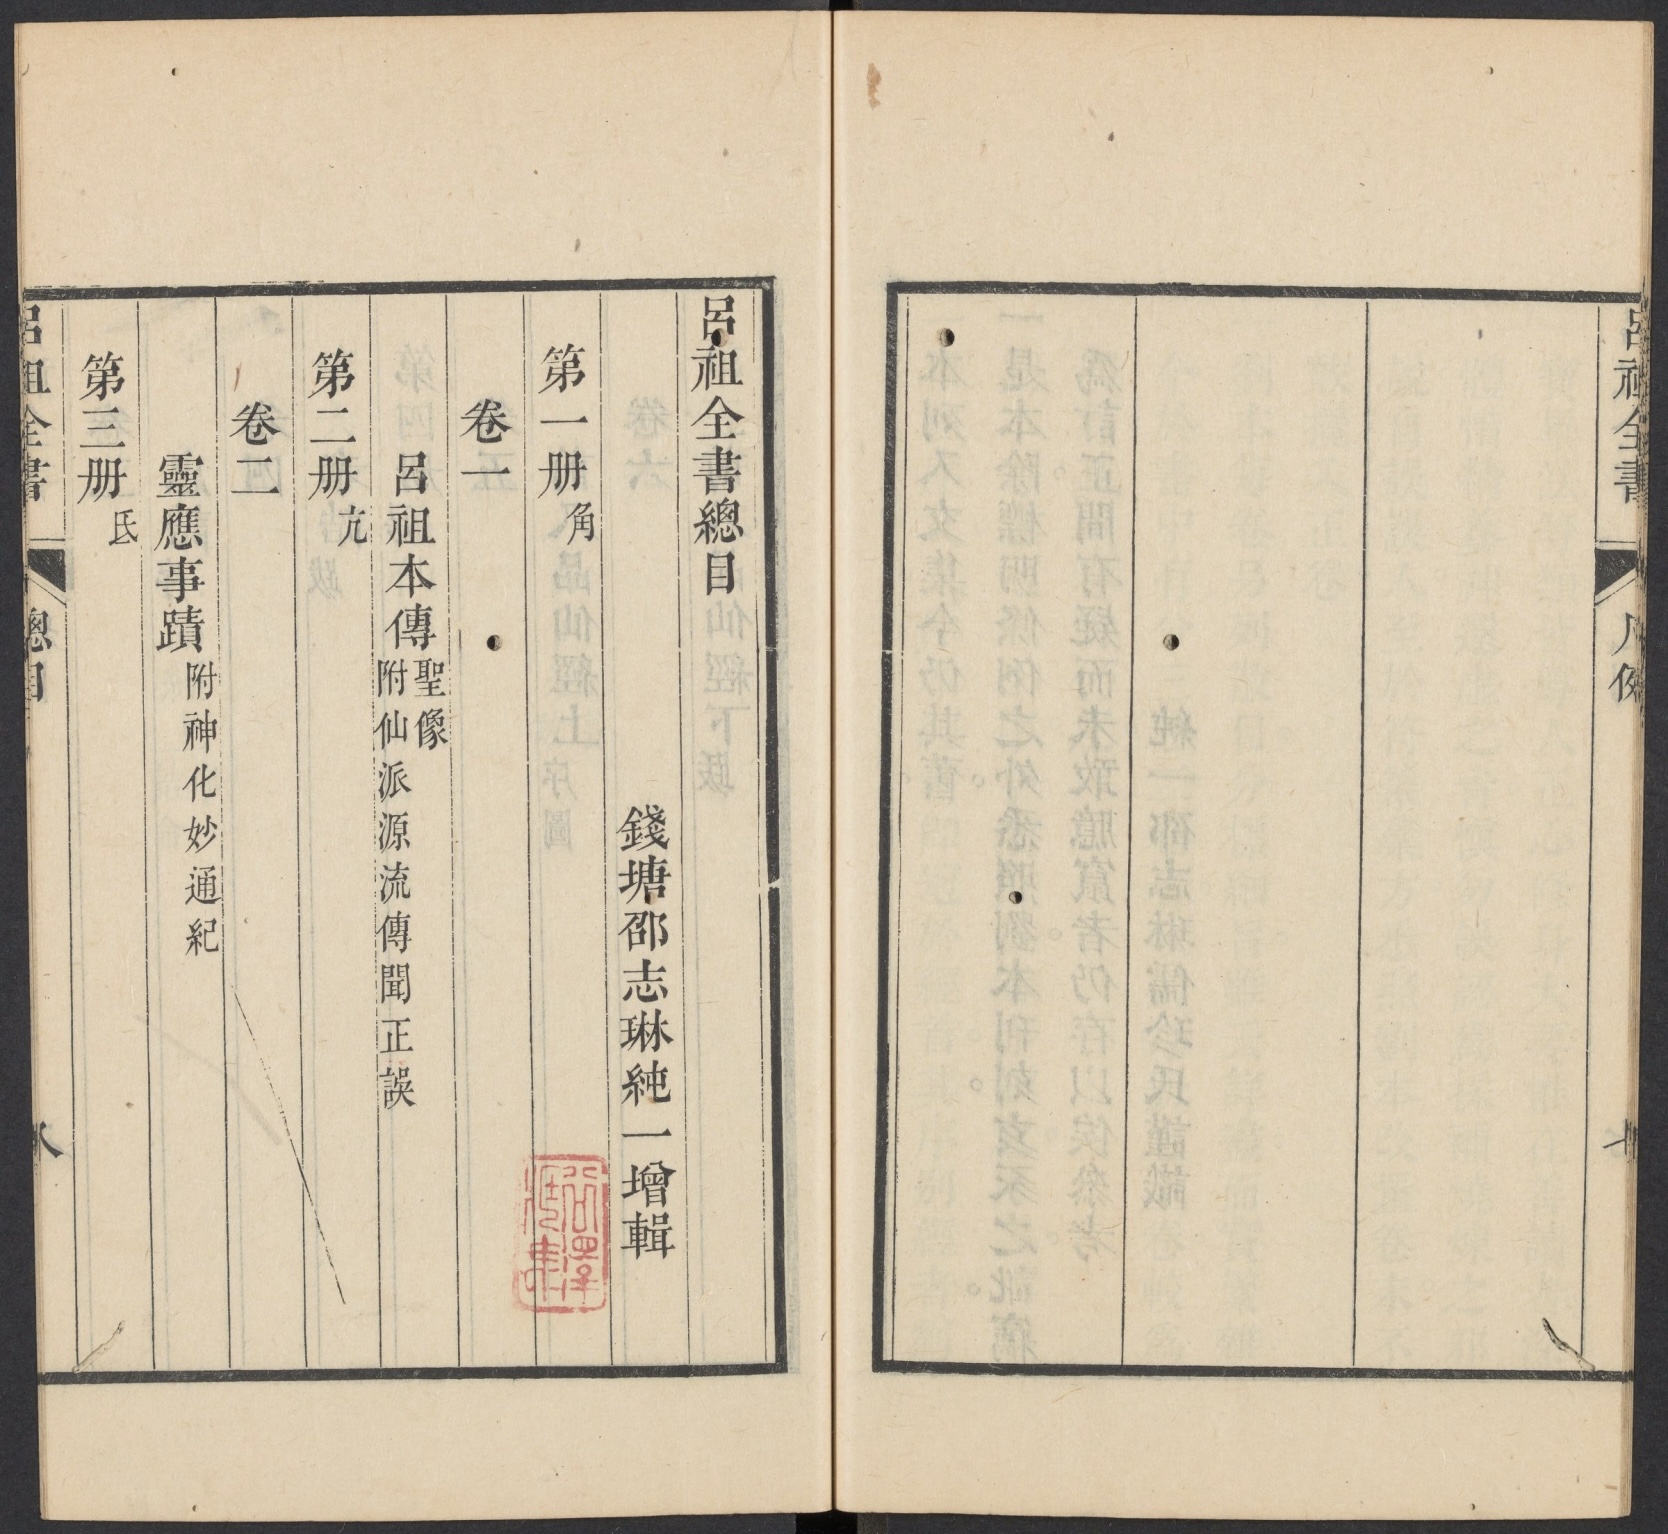 呂祖全書
凡例
七
呂祖全書總目
錢塘邵志琳純一增輯
第一册角
卷一
呂祖本傳聖像
附仙派源流傳聞正誤
第二册亢
卷二
靈應事蹟附神化妙通紀
第三册氐
呂祖全書
總目
八